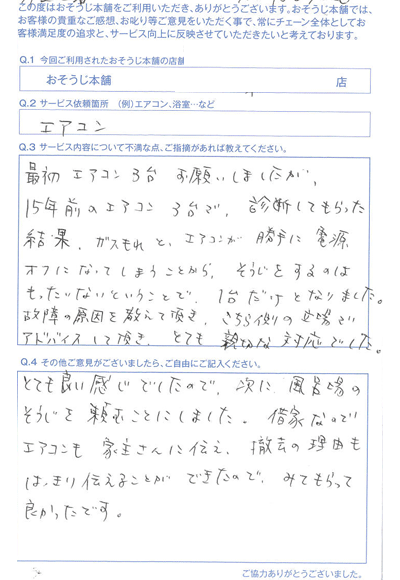 この度はおそうじ本舗をご利用いただき、ありがとうございます。おそうじ本舗では、
お客様の貴重なご感想、お叱り等ご意見をいただく事で、常にチェーン全体としてお
客様満足度の追求と、サービス向上に反映させていただきたいと考えております。
Q.1 今回ご利用されたおそうじ本舗の店舗
おそうじ本舗 店
Q.2 サービス依頼箇所 (例)エアコン、浴室…など
エアコン
Q.3 サービス内容について不満な点、ご指摘があれば教えてください。
最初 エアコン 3台 お願いしましたが、
15年前のエアコン 3台で、診断してもらった
結果、ガスもれと、エアコンが勝手に電源
オフになってしまうことから、そうじをするのは
もったいないということで、1台だけとなりました。
故障の原因を教えて頂き、こちら側の立場で
アドバイスして頂き、とても親切な対応でした。
Q.4 その他ご意見がございましたら、ご自由にご記入ください。
とても良い感じでしたので、次に風呂場の
そうじを頼むことにしました。借家なので
エアコンも家主さんに伝え、撤去の理由も
はっきり伝えることができたので、みてもらって
良かったです。
ご協力ありがとうございました。